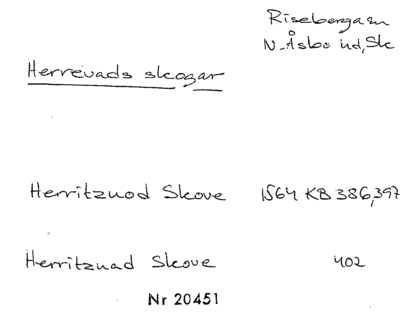 Riseberga sn
N. Åsbo hd, Sk
Herrevads skogar
Herritzuod Skove 1564 KB 386,397
Herritzuad Skove 402
Nr 20451